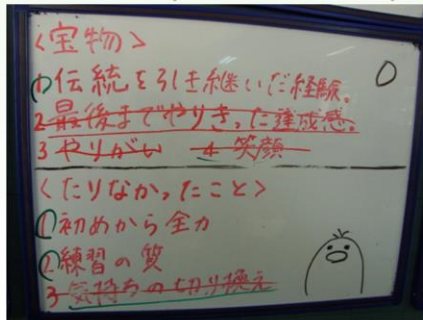 <宝物>
① 伝統を引き継いだ経験。
2 最後までやりきった達成感。
3 やりがい 4 笑顔
<たりなかったこと>
① 初めから全力
② 練習の質
3 気持ちの切り換え